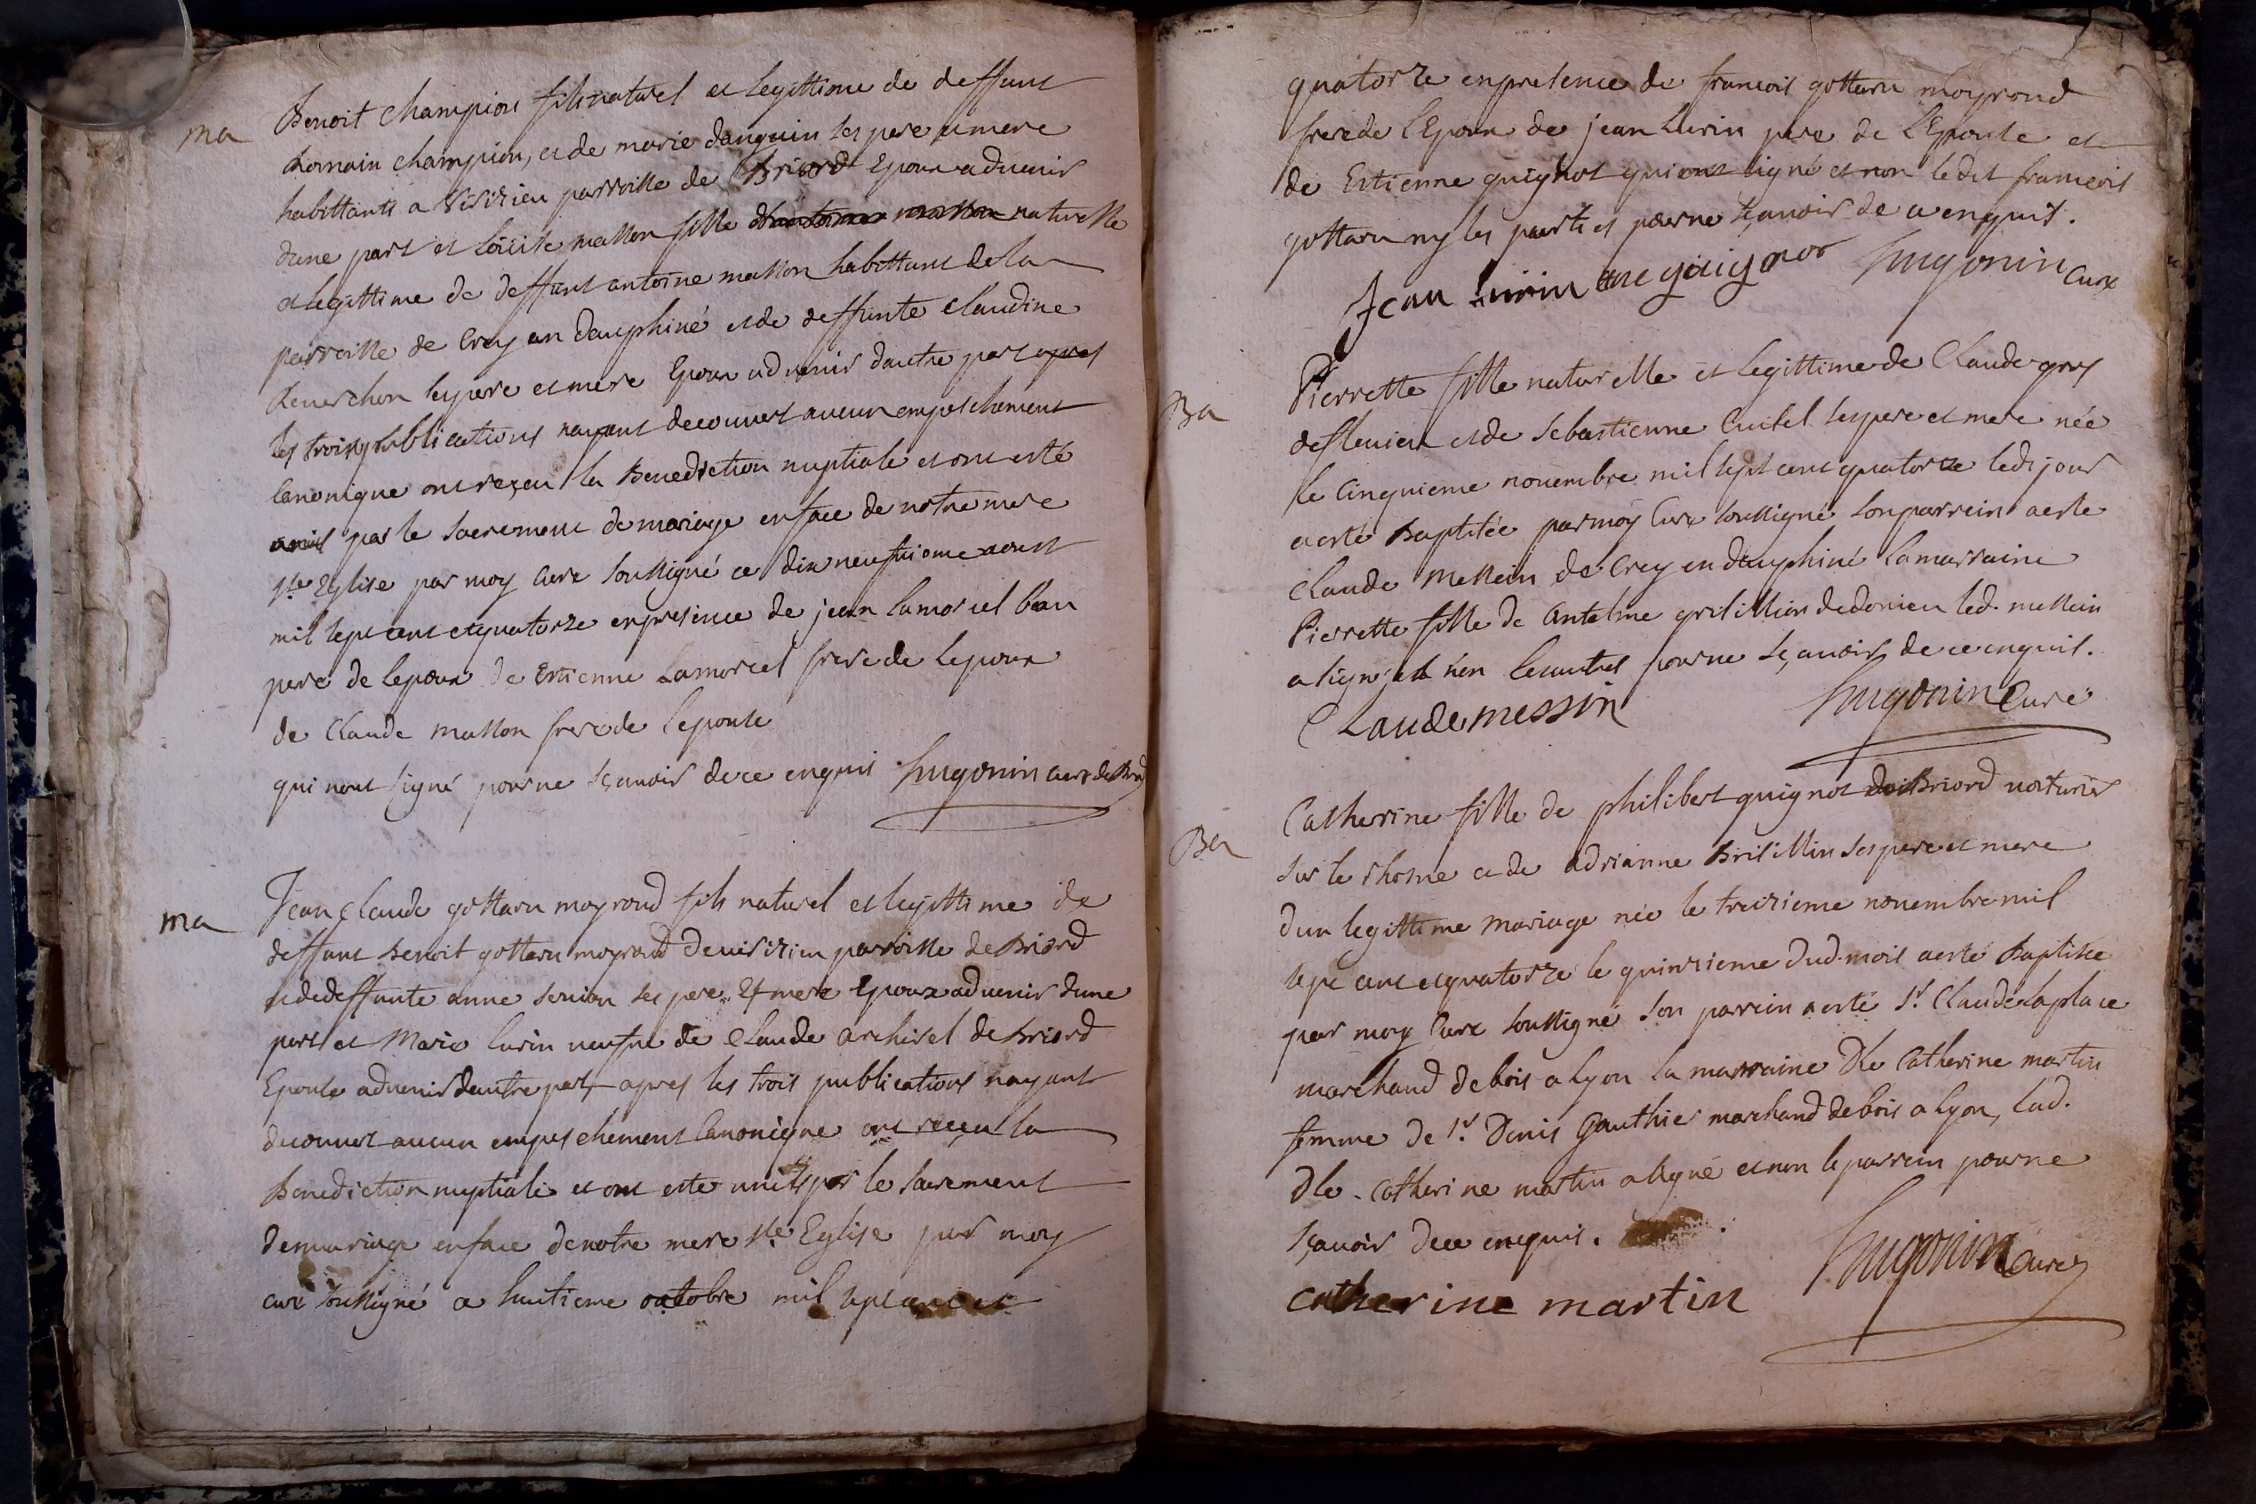 ma
Benoit champion fils naturel et legittime de deffunt
Romain champion, et de marie danguin ses pere et mere
habittants a Vísizieu parroisse de Briord Epoux advenir
dune part et Loüise masson fille naturelle
et legittime de deffunt antoine masson habittant de la
parroisse de Crey en dauphiné et de deffunte claudine
ses pere et mere Epoux advenir dautre part apres
les trois publications nayant decouvert aucun empeschement
Canonique ont reçeu la Benediction nuptiale et ont esté
unis par le sacrement de mariage en face de notre mere
ste Eglise par moy Curé soussigné ce dix neufvieme aoust
mil sept cent et quatorze en presence de jean Lamorcel beau
pere de lepoux de Estienne Lamorcel frere de lepoux
de Claude masson frere de lepouse
qui nont signé pour ne sçavoir de ce enquis hugonin curé de Briord
ma
Jean Claude gottaru moyroud fils naturel et legittime de
deffunt Benoit gottaru moyroud de visizieu parroisse de Briord
et de deffunte anne ses pere et mere Epoux advenir dune
part et Marie Lurin veufve de Claude archirel de Briord
Epouse advenir dautre part apres les trois publications nayant
decouvert aucun empeschement Canonique ont reçeu la
Benediction nuptiale et ont esté unis par le sacrement
de mariage en face de notre mere ste Eglise par moy
curé soussigné ce huitieme octobre mil sept cent et
quatorze en presence de francois gottaru moyroud
frere de l'Epoux de jean Lurin pere de l'Epouse et
de Estienne quignot qui ont signé et non ledit francois
gottaru ny les parties pour ne sçavoir de ce enquis.
Jean Lurin quignot hugonin Curé
Ba
Pierrette fille naturelle et legittime de Claude gros
de fleurieu et de Sebastienne Cuisel ses pere et mere née
le Cinquieme novembre mil sept cent quatorze ledit jour
a esté Baptisée par moy Curé soussigné son parrein a esté
Claude Messein de Crey en dauphiné la marraine
Pierrette fille de Antelme grisillion de donieu led. messein
a signé et non les autres pour ne sçavoir de ce enquis.
Claude messin hugonin Curé
Ba
Catherine fille de philibert quignot de Briord voiturier
sur le rhosne et de adrianne Brisillin ses pere et mere
dun legittime mariage née le treizieme novembre mil
sept cent et quatorze le quinzieme dud. mois a esté Baptisée
par moy Curé soussigné son parrein a esté sr. Claude Laplace
marchand de bois a Lyon la marraine Dle Catherine martin
femme de sr. Denis Gauthier marchand de bois a Lyon, lad.
Dle. Catherine martin a signé et non le parrein pour ne
sçavoir de ce enquis.
catherine martin hugonin Curé